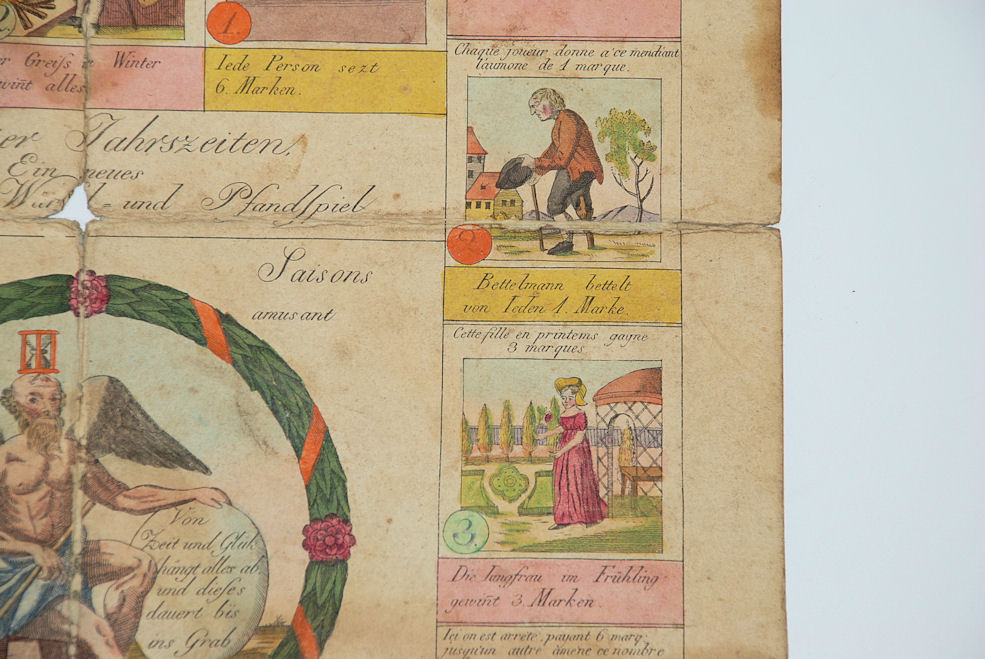 1.
Greiſs im Winter
alles
Iede Person sezt
6. Marken.
Jahrszeiten,
Ein neues
- und Pfandſpiel
Saisons
amusant
Von
Zeit und Glük
hängt alles ab,
und dieſes
dauert bis
ins Grab
Chaque joueur donne a ce mendiant
l'aumone de 1 marque.
2.
Bettelmann bettelt
von Ieden 1. Marke.
Cette fille en printems gagne
3 marques
3.
Die Iungfrau im Frühling
gewin̄t 3. Marken.
Ici on est arreté, payant 6 marq:
jusqu'un autre amene ce nombre